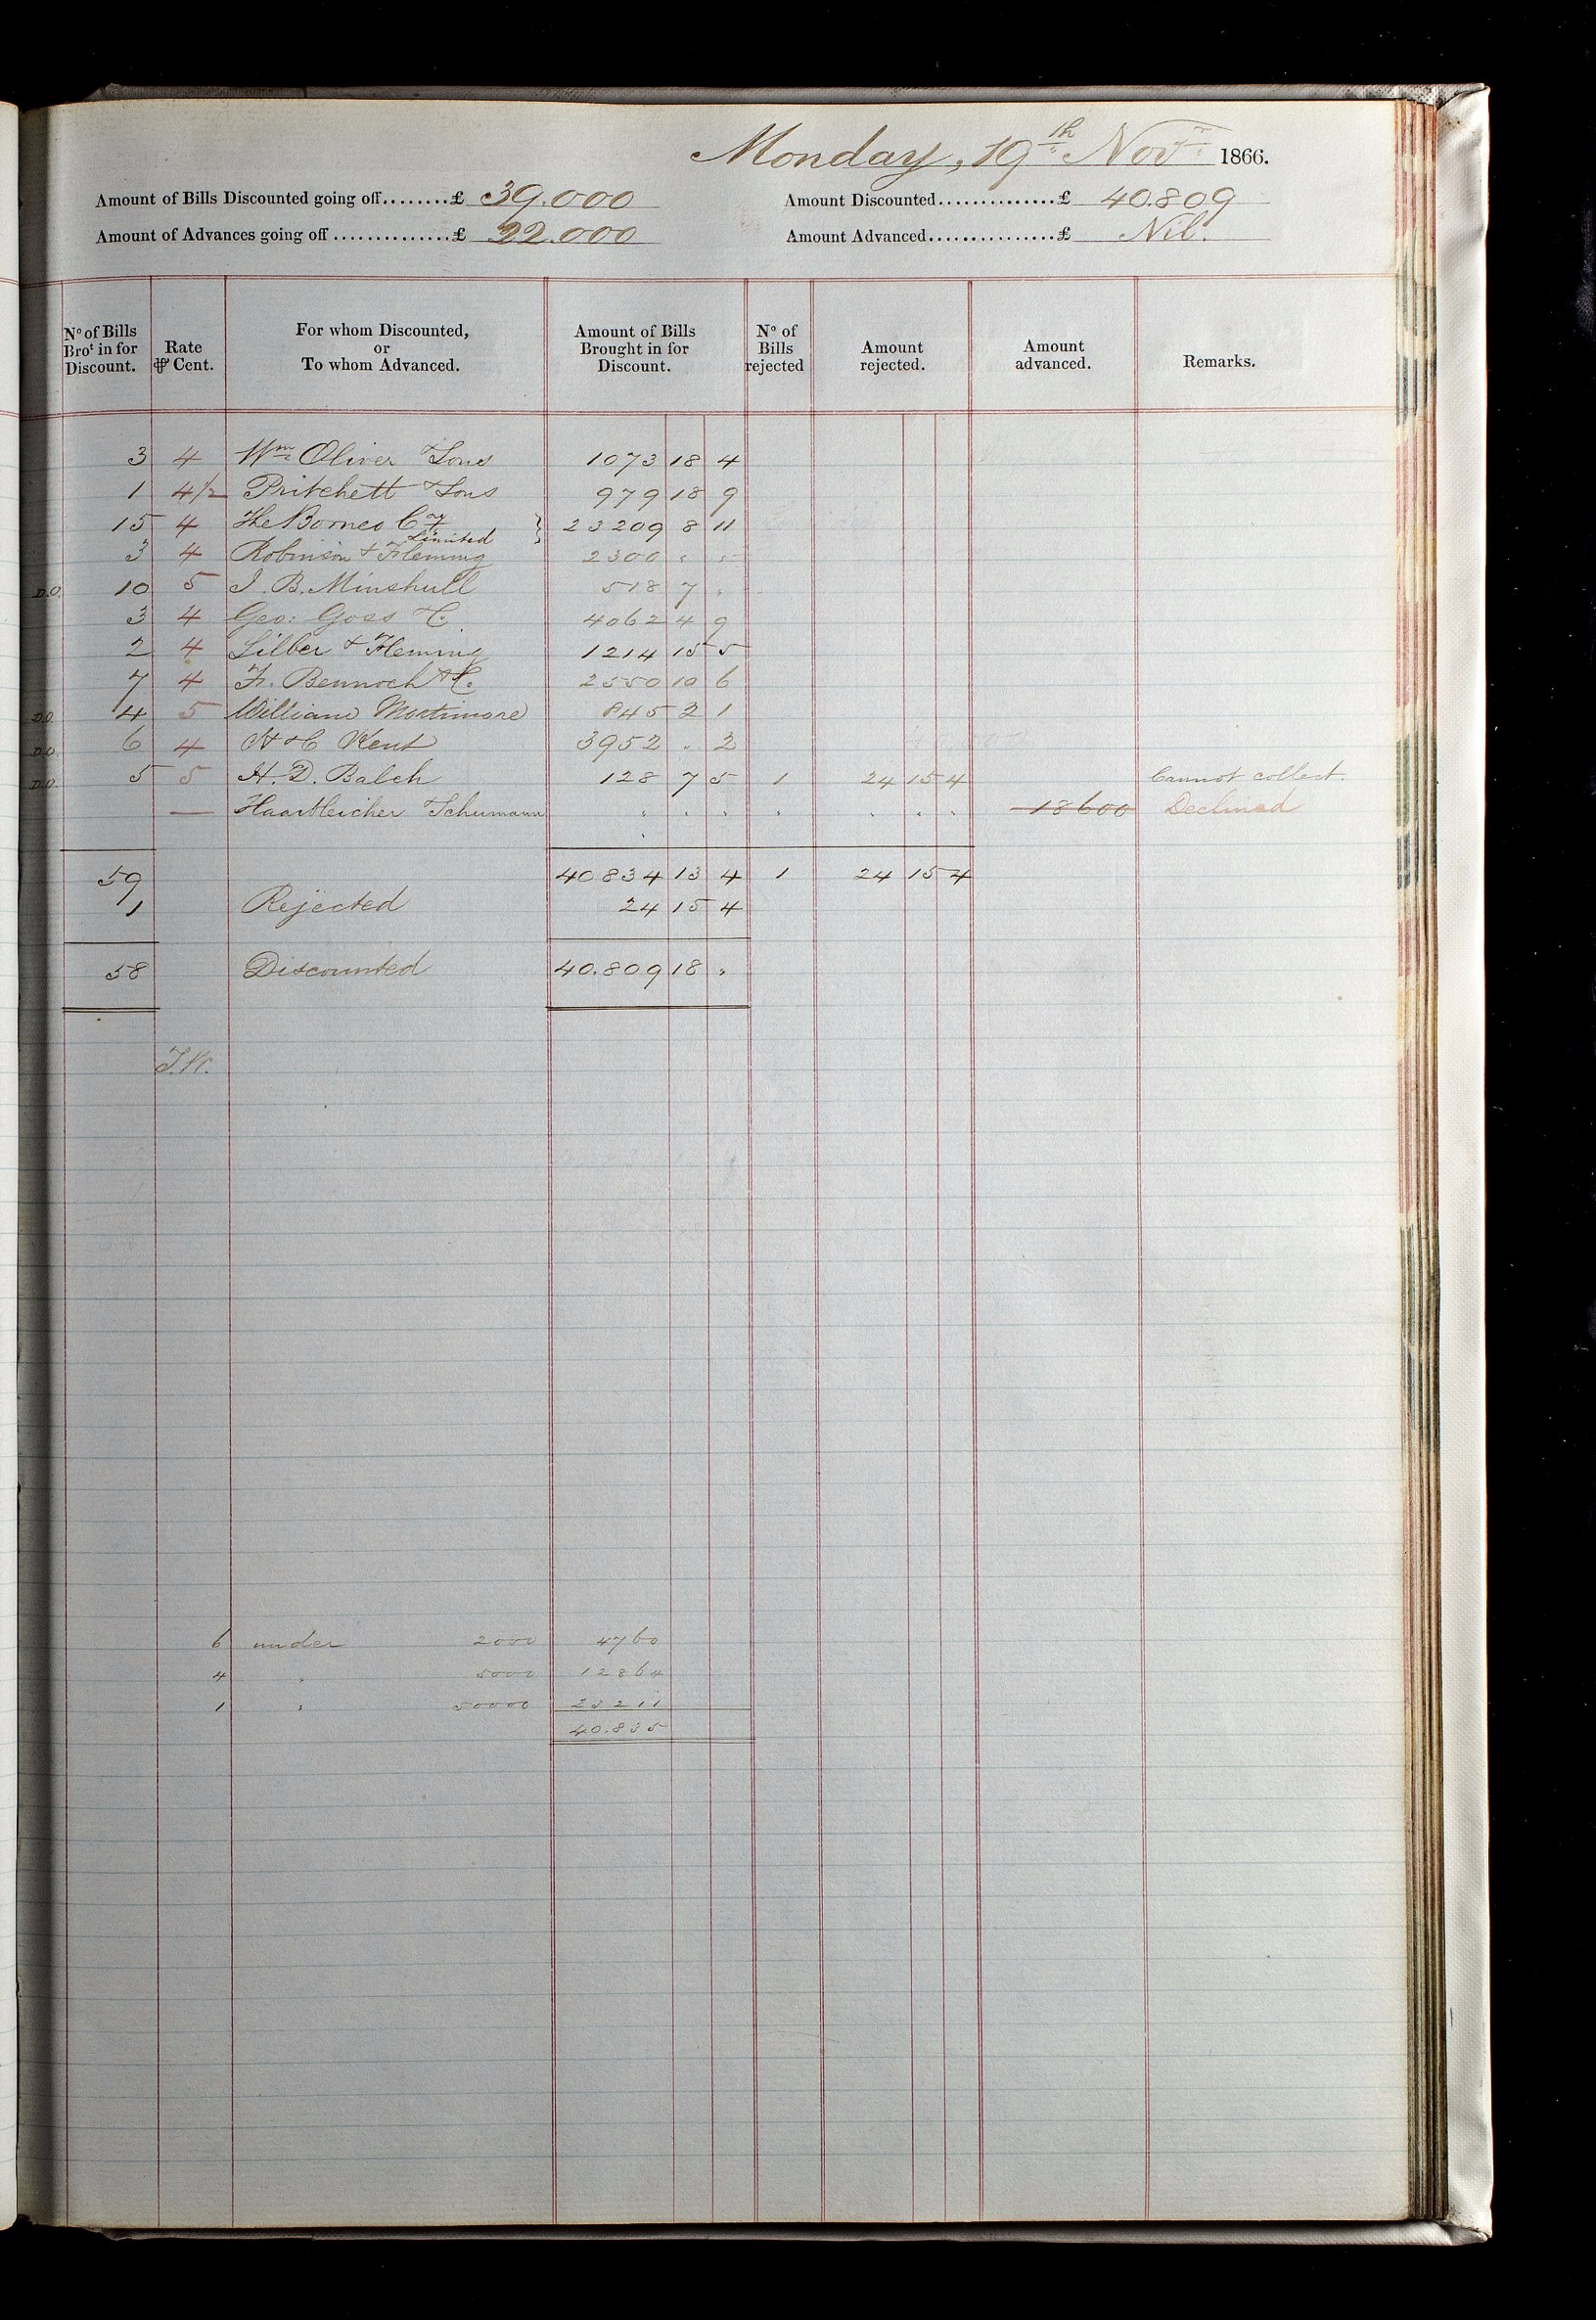 Monday, 19th Novr 1866.
Amount of Bills Discounted going off........£ 39.000 Amount Discounted...............£ 40.809
Amount of Advances going off..............£ 22.000 Amount Advanced................£ Nil.
No of Bills Brot in for Discount. Rate ⅌ Cent. For whom Discounted, or To whom Advanced. Amount of Bills Brought in for Discount. No of Bills rejected Amount rejected. Amount advanced. Remarks.
3 4 Wm Oliver & Sons 1073 18 4
1 4½ Pritchett & Sons 979 18 9
15 4 The Borneo Coy Limited } 23209 8 11
3 4 Robinson & Fleming 2300 " "
D.O. 10 5 I. B. Minshull 518 7 "
3 4 Geo: Goss & C. 4062 4 9
2 4 Silber & Fleming 1214 15 5
7 4 Fr. Bennoch & C. 2550 10 6
D.O. 4 5 William Mortimore 845 2 1
D.O. 6 4 H & C Kent 3952 " 2
D.O. 5 5 H. D. Balch 128 7 5 1 24 15 4 Cannot collect.
— Schumann " " " " " " " 18600 Declined
59 40834 13 4 1 24 15 4
1 Rejected 24 15 4
58 Discounted 40.809 18 "
6 under 2000 4760
4 " 5000 12864
1 " 50000 23211
40.835